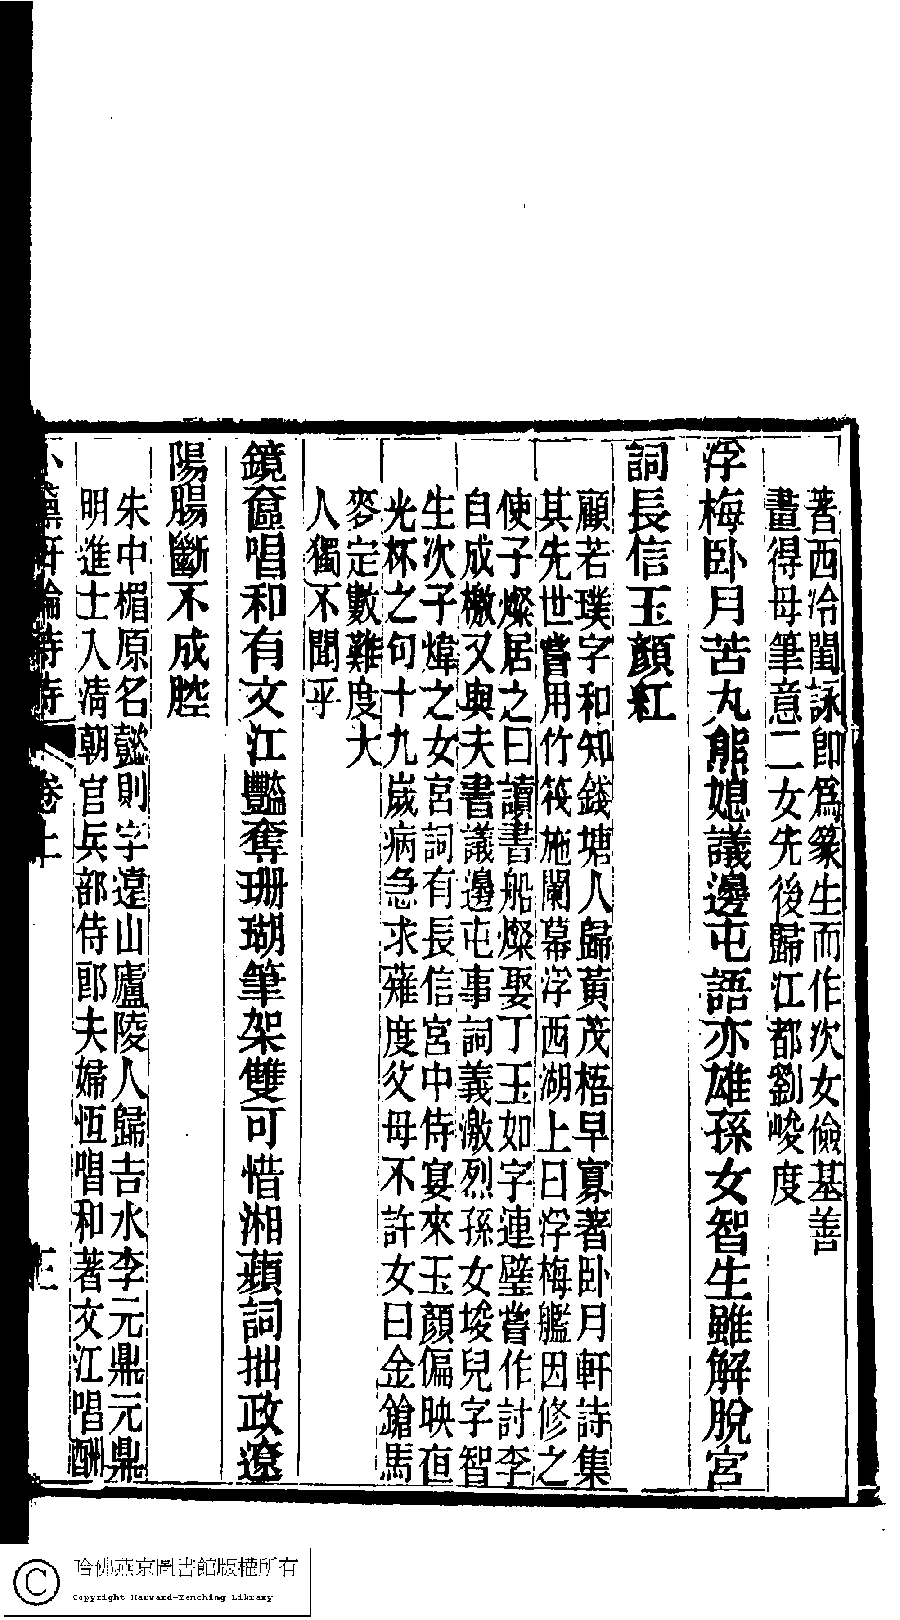 著西泠閨詠卽爲篆生而作次女儉基善
畫得母筆意二女先後歸江都劉峻度
浮梅卧月苦丸熊媳議邊屯語亦雄孫女智生雖解脫宮
詞長信玉顏紅
顧若璞字和知錢塘人歸黃茂梧早寡著卧月軒詩集
其先世嘗用竹筏施闌幕浮西湖上曰浮梅檻因修之
使子燦居之曰讀書船燦娶丁玉如字連璧嘗作討李
自成檄又與夫書議邊屯事詞義激烈孫女埈兒字智
生次子煒之女宮詞有長信宮中侍宴來玉顏偏映亱
光杯之句十九歲病急求薙度父母不許女曰金鎗馬
麥定數難度大
人獨不聞乎
鏡奩唱和有文江豔奪珊瑚筆架雙可惜湘蘋詞拙政遼
陽腸斷不成腔
朱中楣原名懿則字遠山廬陵人歸吉水李元鼎元鼎
明進士入清朝官兵部侍郎夫婦恆唱和著文江唱酬
卷上
三
哈佛燕京圖書館版權所有
Copyright Harvard-Yenching Library